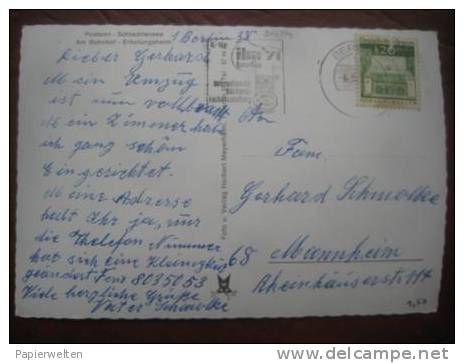 Postamt - Schlachtensee
Am Bahnhof - Erholungsheim
1 Berlin 38
Lieber Gerhard
Mein Umzug
ist nun vollbracht
Mein Zimmer habe
ich ganz schön
Eingerichtet.
Meine Adresse
habt Ihr ja, nur
die Thelefon Nummer
hat sich eine Kleinigkeit
geändert Fern 8035053
Viele herzliche Grüße
Vater Schmolke
Foto u. Verlag Herbert Meyerheim
ifa 71
berlin
An
Fam.
Gerhard Schmolke
68 Mannheim
Rheinhäuserstr 114
1,50
© Papierwelten
http://www.delcampe.net